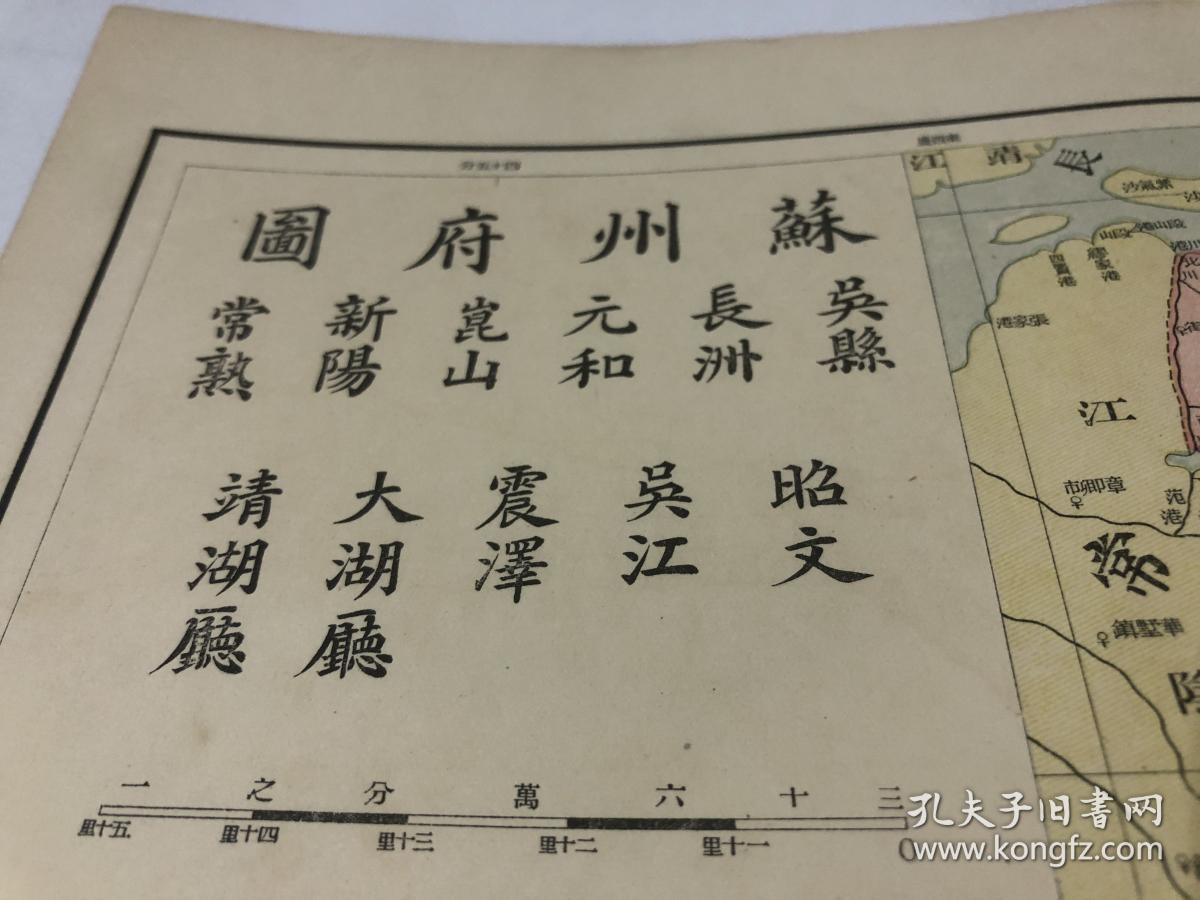 蘇州府圖
吳縣
長洲
元和
崑山
新陽
常熟
昭文
吳江
震澤
大湖廳
靖湖廳
三十六萬分之一
0
一十里
二十里
三十里
四十里
五十里
靖江
長
紫氣沙
段山港
段山
四賣港
張家港
江
章卿市
范港
常
華墅鎮
陰
孔夫子旧书网
www.kongfz.com